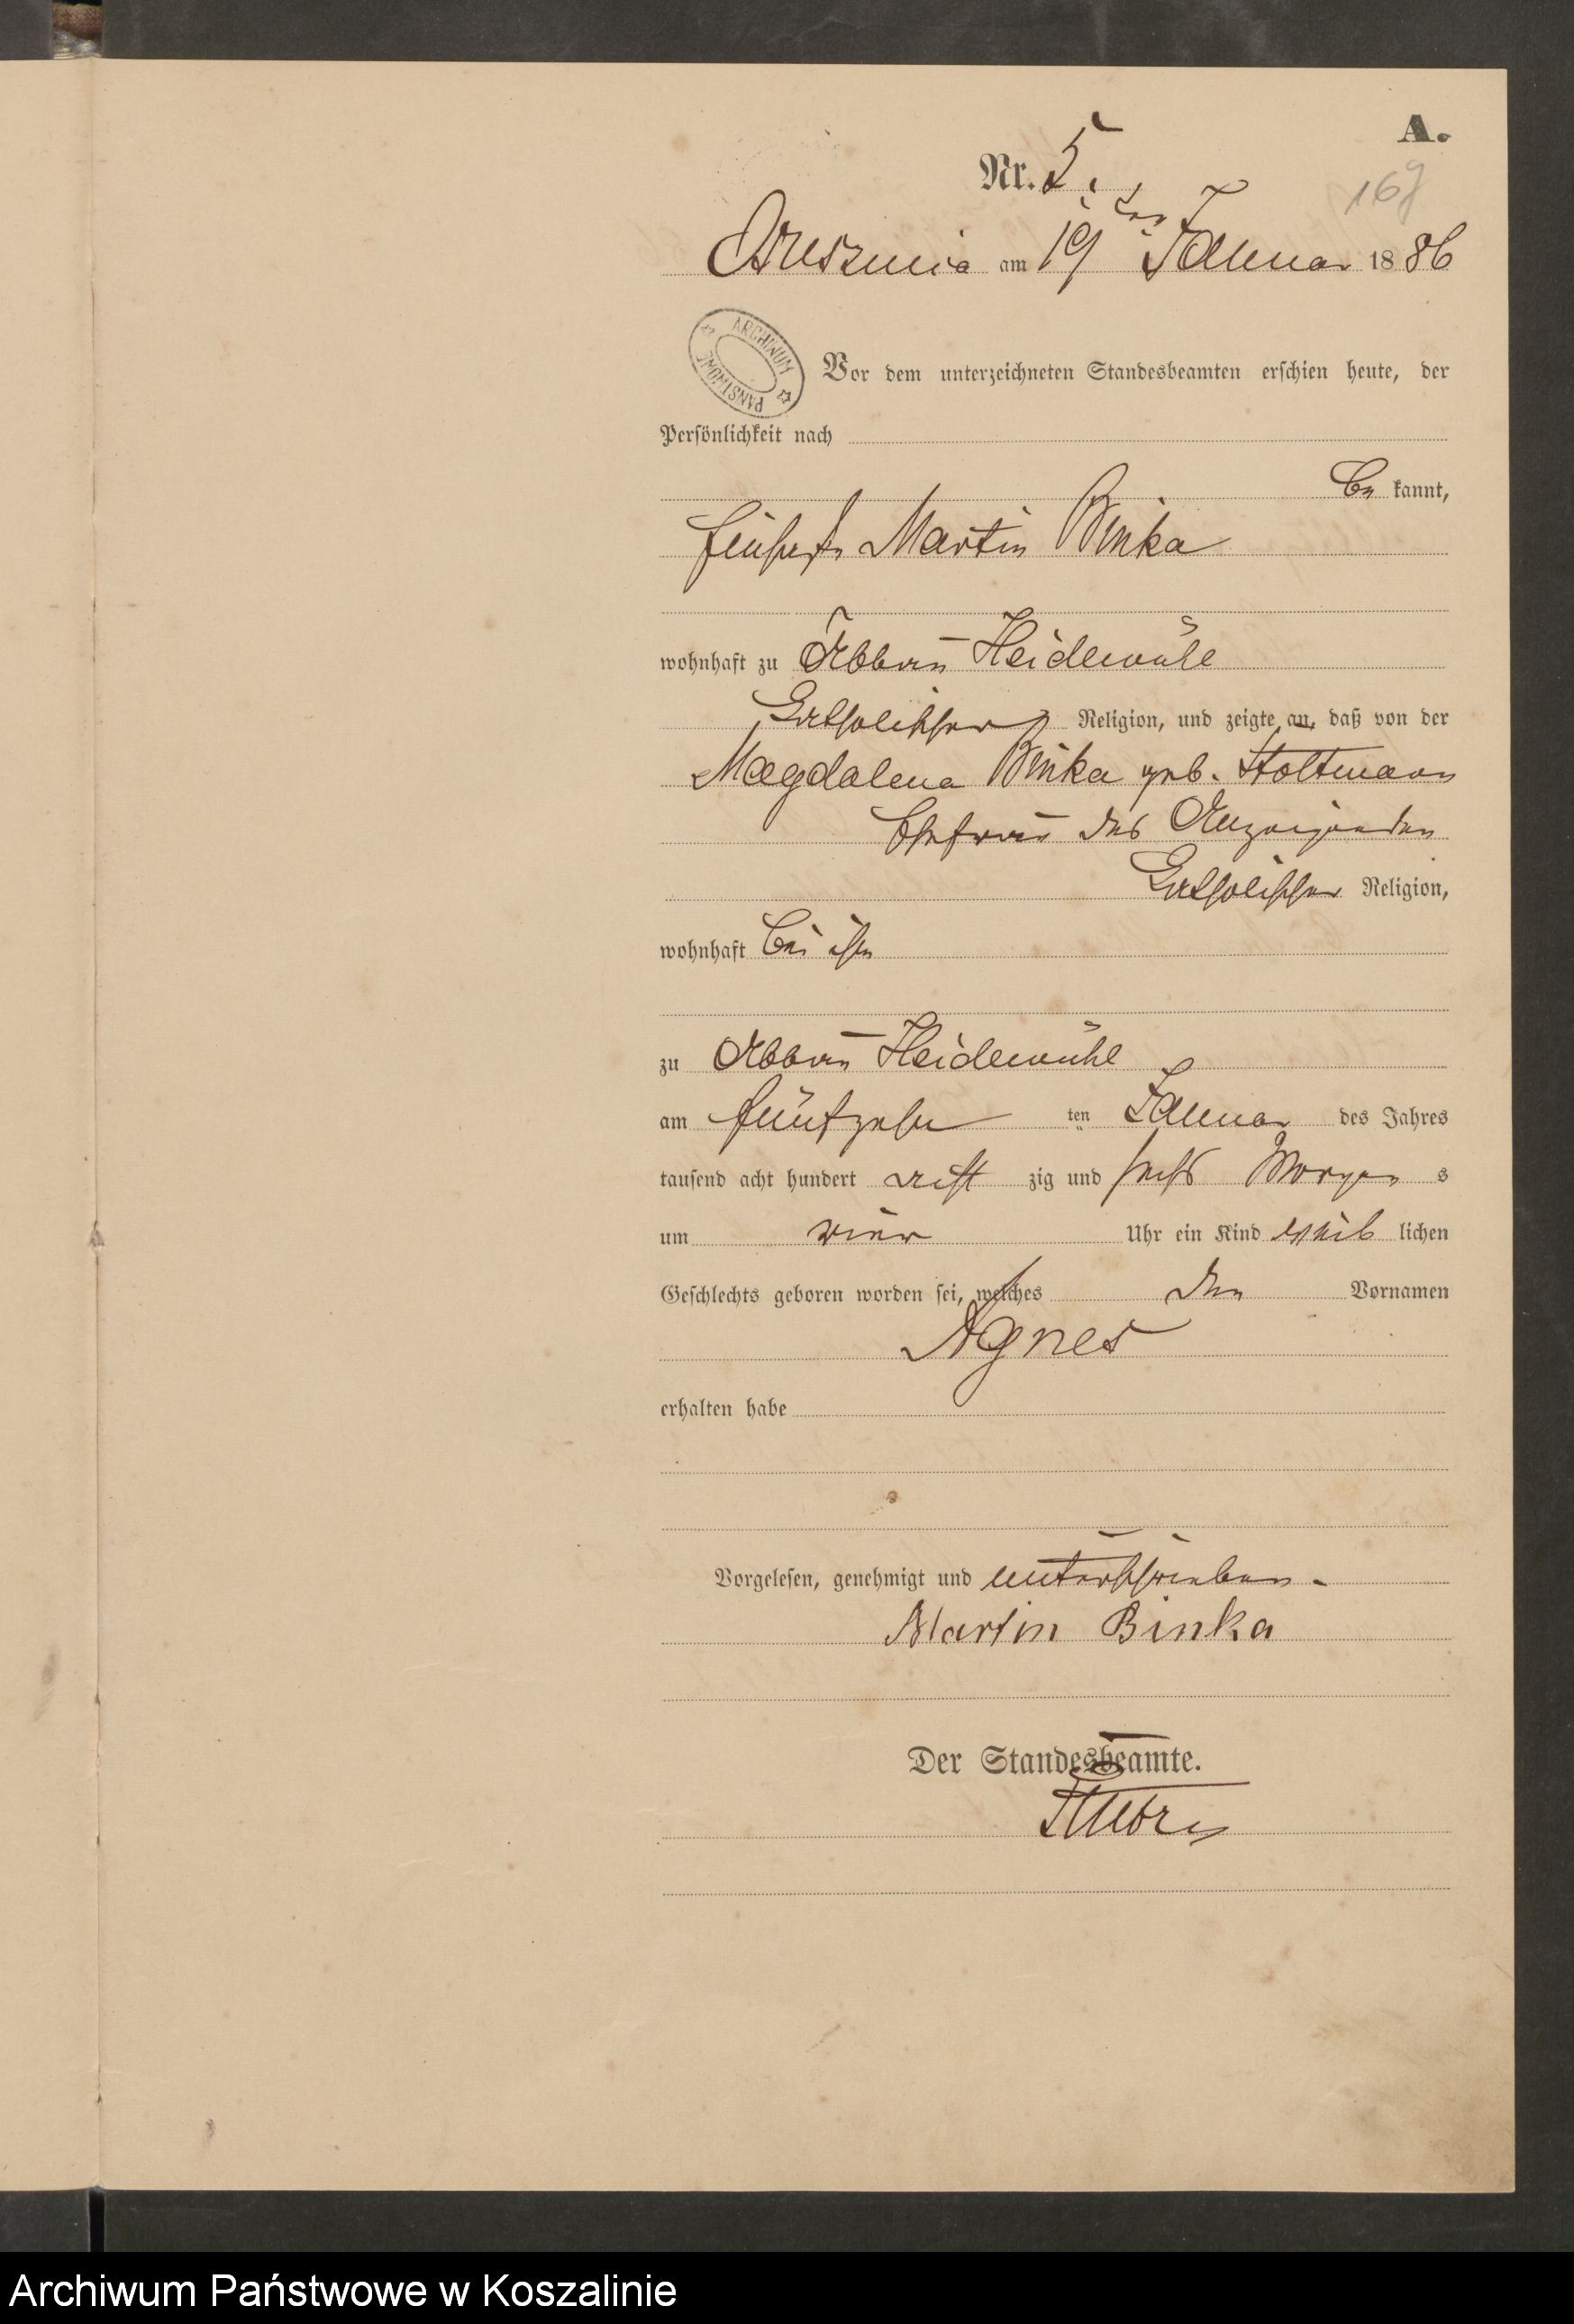 A.
Nr. 5.
169
am 19ten Januar 1886
ARCHIWUM PAŃSTWOWE
Vor dem unterzeichneten Standesbeamten erschien heute, der
Persönlichkeit nach
be kannt,
Martin Binka
wohnhaft zu Abbau Heidemühl
katholischer Religion, und zeigte an, daß von der
Magdalena Binka geb. Stoltmann
Ehefrau des Anzeigenden
katholischer Religion,
wohnhaft bei ihm
zu Abbau Heidemühl
am fünfzehn ten Januar des Jahres
tausend acht hundert acht zig und sechs Morgen s
um vier Uhr ein Kind weib lichen
Geschlechts geboren worden sei, welches den Vornamen
Agnes
erhalten habe
Vorgelesen, genehmigt und unterschrieben.
Martin Binka
Der Standesbeamte.
Archiwum Państwowe w Koszalinie